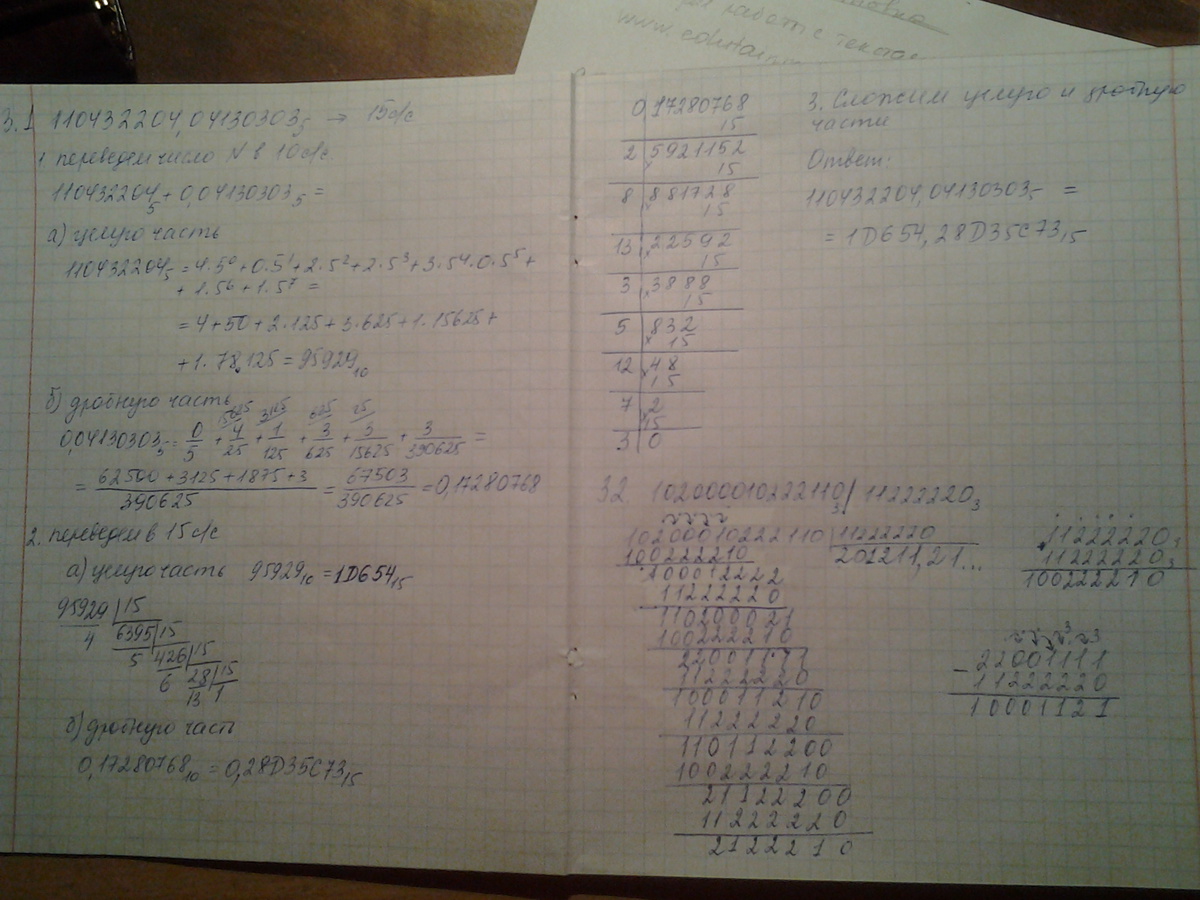 для работ с текста
www.eduta
3.1 110432204,04130303₅ → 15 с/с
1 переведем число N в 10 с/с
110432204₅ + 0,04130303₅ =
а) целую часть
110432204₅ = 4·5⁰ + 0·5¹ + 2·5² + 2·5³ + 3·5⁴·0·5⁵ +
+ 1·5⁶ + 1·5⁷ =
= 4 + 50 + 2·125 + 3·625 + 1·15625 +
+ 1·78,125 = 95929₁₀
б) дробную часть
0,04130303₅ = 0/5 + 4/25 + 1/125 + 3/625 + 3/15625 + 3/390625 =
= (62500 + 3125 + 1875 + 3)/390625 = 67503/390625 = 0,17280768
2. переведем в 15 с/с
а) целую часть 95929₁₀ = 1D654₁₅
95929 | 15
4 6395 | 15
5 426 | 15
6 28 | 15
13 1
б) дробную часть
0,17280768₁₀ = 0,28D35C73₁₅
0 | 17280768
15
2 | 5921152
× 15
8 | 881728
× 15
13 | 22592
× 15
3 | 3888
× 15
5 | 832
× 15
12 | 48
× 15
7 | 2
× 15
3 | 0
3. Сложим целую и дробную
части
Ответ:
110432204,04130303₅ =
= 1D654,28D35C73₁₅
32. 102000010222110₃ / 11222220₃
1020000 10222110 | 11222220
100222210 201211,21...
100012222
11222220
110200021
100222210
22001111
11222220
100011210
11222220
110112200
100222210
21122200
11222220
2122210
11222220₃
11222220₃
100222210
3 3
- 22001111
11222220
10001121